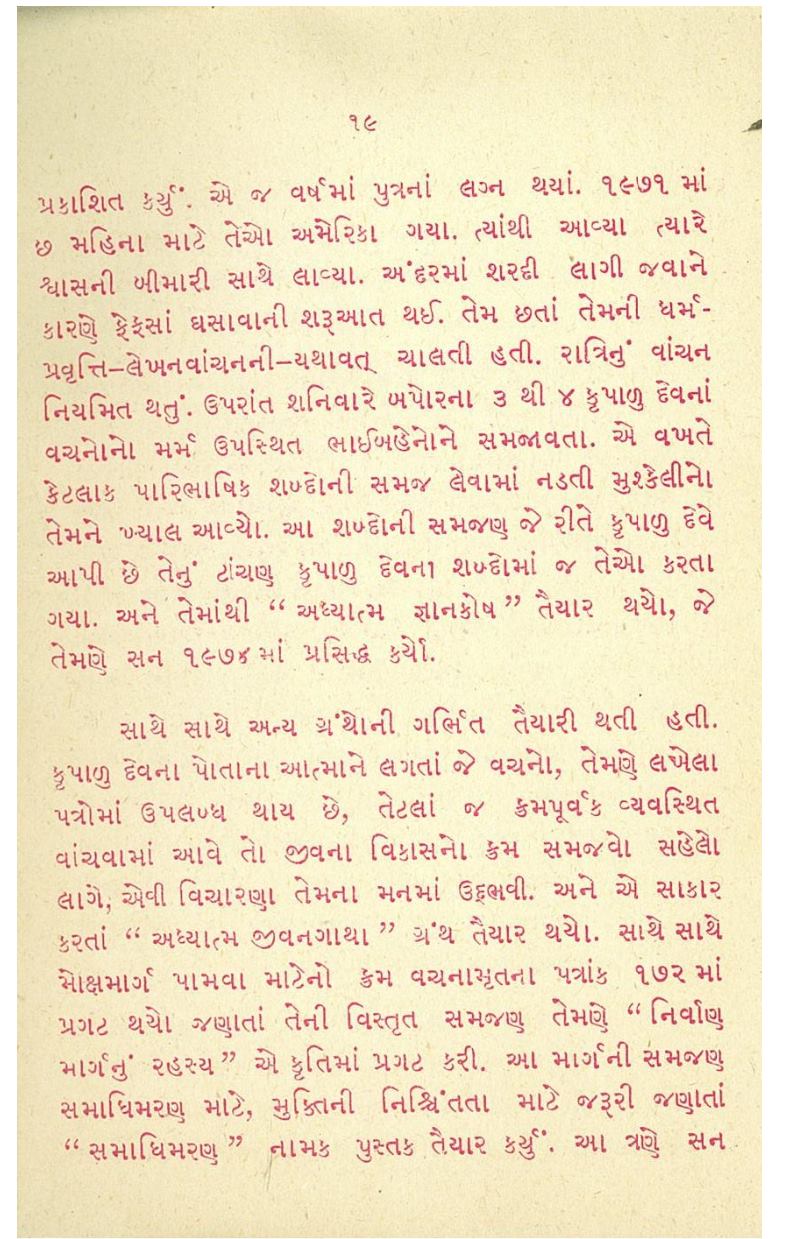 ૧૯
પ્રકાશિત કર્યું. એ જ વર્ષમાં પુત્રનાં લગ્ન થયાં. ૧૯૭૧ માં
છ મહિના માટે તેઓ અમેરિકા ગયા. ત્યાંથી આવ્યા ત્યારે
શ્વાસની બીમારી સાથે લાવ્યા. અંદરમાં શરદી લાગી જવાને
કારણે ફેફસાં ઘસાવાની શરૂઆત થઈ. તેમ છતાં તેમની ધર્મ-
પ્રવૃત્તિ–લેખનવાંચનની–યથાવત્ ચાલતી હતી. રાત્રિનું વાંચન
નિયમિત થતું. ઉપરાંત શનિવારે બપોરના ૩ થી ૪ કૃપાળુ દેવનાં
વચનોનો મર્મ ઉપસ્થિત ભાઈબહેનોને સમજાવતા. એ વખતે
કેટલાક પારિભાષિક શબ્દોની સમજ લેવામાં નડતી મુશ્કેલીનો
તેમને ખ્યાલ આવ્યો. આ શબ્દોની સમજણ જે રીતે કૃપાળુ દેવે
આપી છે તેનું ટાંચણ કૃપાળુ દેવના શબ્દોમાં જ તેઓ કરતા
ગયા. અને તેમાંથી “ અધ્યાત્મ જ્ઞાનકોષ ” તૈયાર થયો, જે
તેમણે સન ૧૯૭૪ માં પ્રસિદ્ધ કર્યો.
સાથે સાથે અન્ય ગ્રંથોની ગર્ભિત તૈયારી થતી હતી.
કૃપાળુ દેવના પોતાના આત્માને લગતાં જે વચનો, તેમણે લખેલા
પત્રોમાં ઉપલબ્ધ થાય છે, તેટલાં જ ક્રમપૂર્વક વ્યવસ્થિત
વાંચવામાં આવે તો જીવના વિકાસનો ક્રમ સમજવો સહેલો
લાગે, એવી વિચારણા તેમના મનમાં ઉદ્દભવી. અને એ સાકાર
કરતાં “ અધ્યાત્મ જીવનગાથા ” ગ્રંથ તૈયાર થયો. સાથે સાથે
મોક્ષમાર્ગ પામવા માટેનો ક્રમ વચનામૃતના પત્રાંક ૧૭૨ માં
પ્રગટ થયો જણાતાં તેની વિસ્તૃત સમજણ તેમણે “ નિર્વાણ
માર્ગનું રહસ્ય ” એ કૃતિમાં પ્રગટ કરી. આ માર્ગની સમજણ
સમાધિમરણ માટે, મુક્તિની નિશ્ચિંતતા માટે જરૂરી જણાતાં
“ સમાધિમરણ ” નામક પુસ્તક તૈયાર કર્યું. આ ત્રણે સન